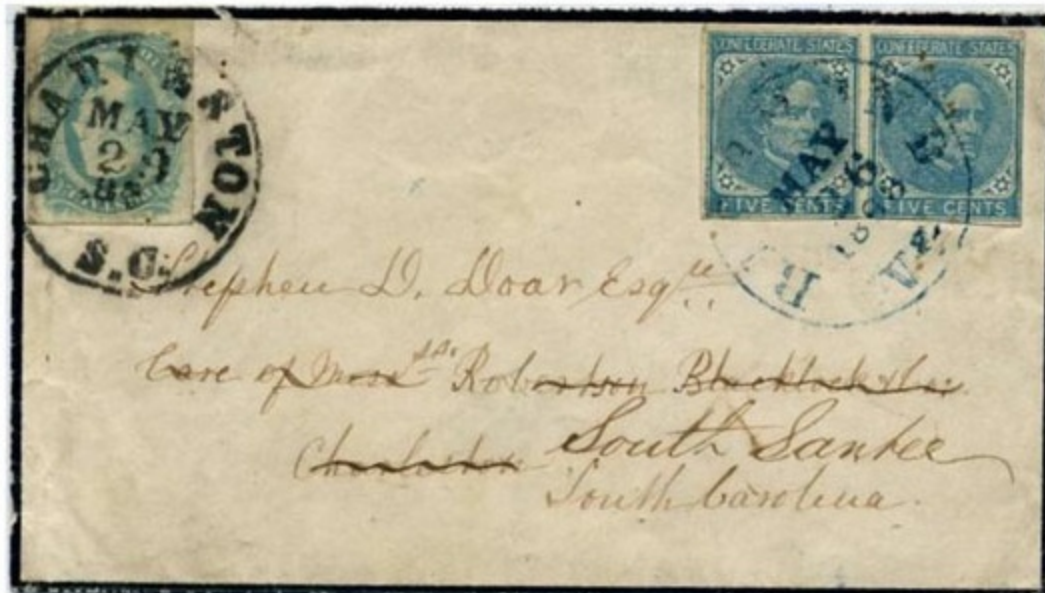 CHARLESTON
MAY
S.C.
CONFEDERATE STATES
FIVE CENTS
CONFEDERATE STATES
FIVE CENTS
MAY
VA
Stephen D. Doar Esqre
Care of Messrs. Robertson Blacklock & Co.
Charleston South Santee
South Carolina.